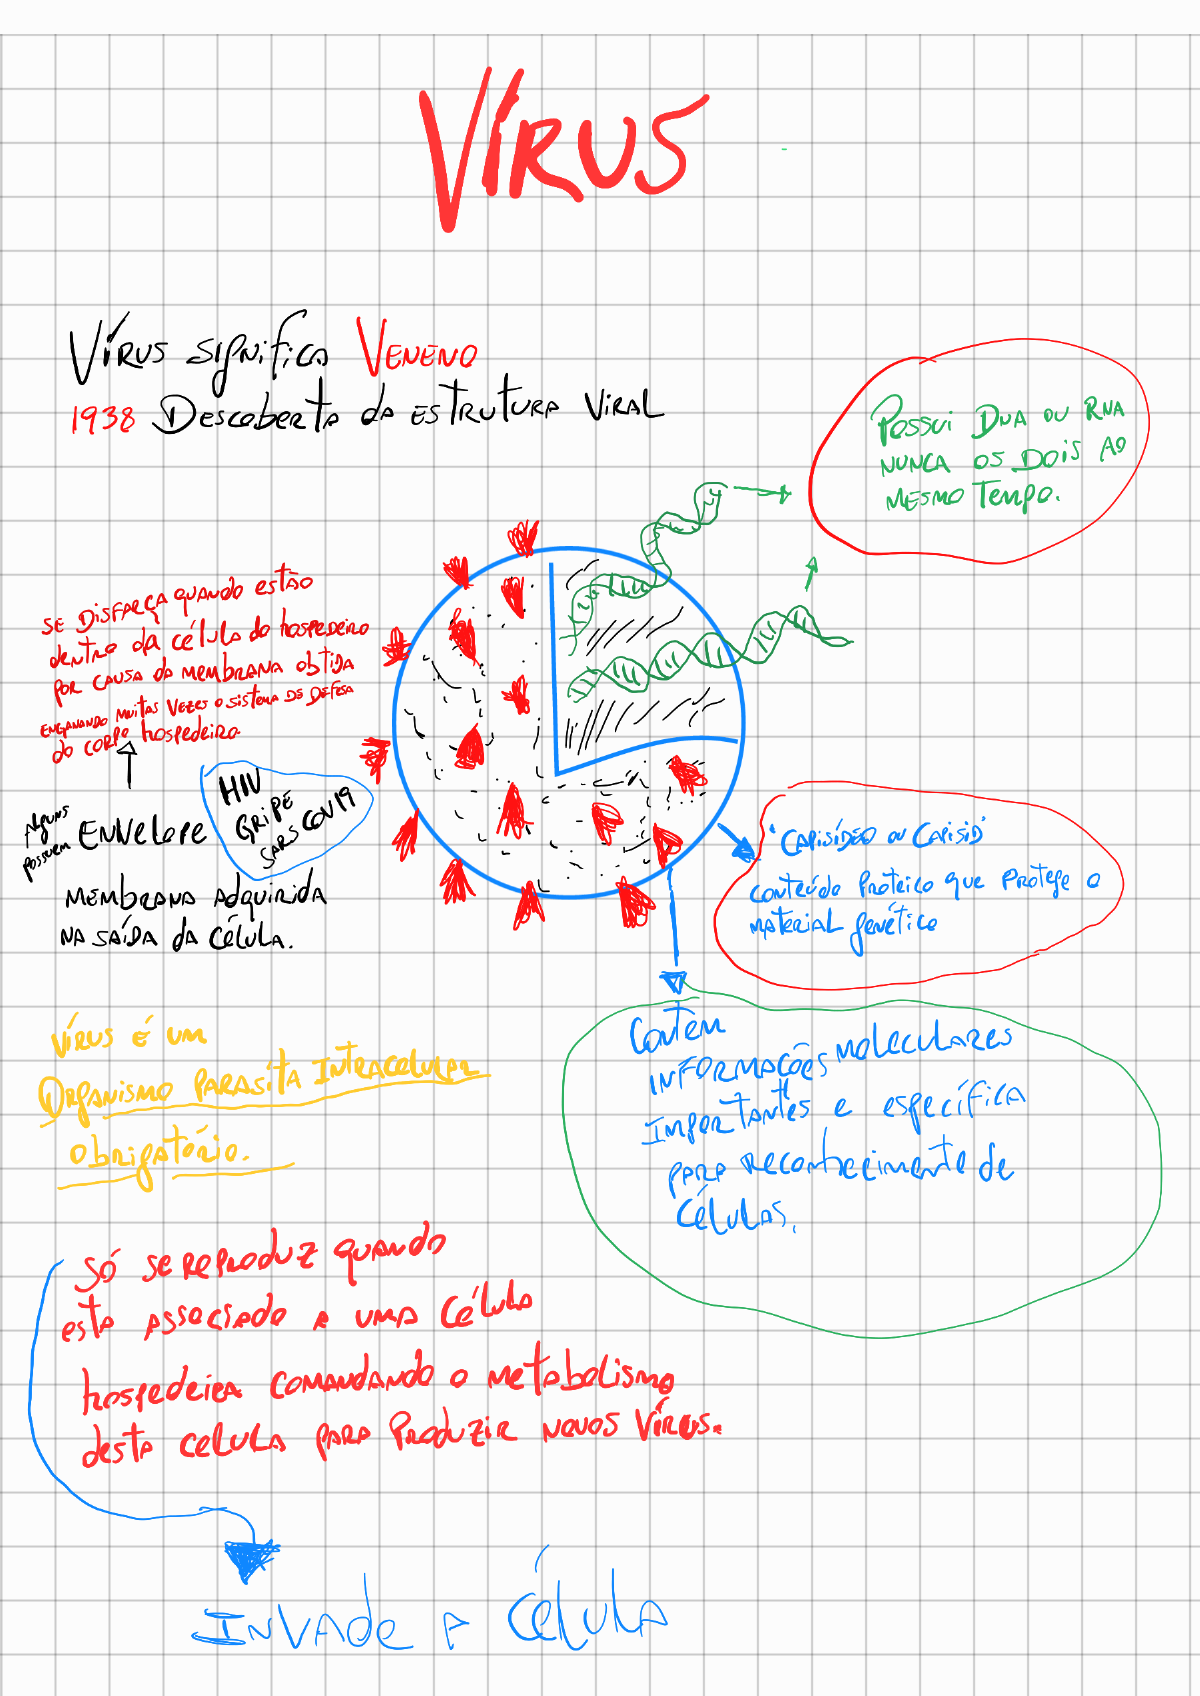 VÍRUS
VÍRUS significa VENENO
1938 Descoberta da ESTRUTURA VIRAL
Possui DNA ou RNA
NUNCA OS DOIS AO
MESMO TEMPO.
SE DISFARÇA quando estão
dentro da célula do hospedeiro
por causa da MEMBRANA obtida
ENGANANDO MUITAS VEZES O SISTEMA DE DEFESA
do corpo hospedeiro.
Alguns
possuem
ENVELOPE
HIV
GRIPE
SARS COV19
MEMBRANA Adquirida
NA SAÍDA DA CÉLULA.
"CAPISÍDEO ou CAPISID"
conteúdo Proteico que Protege o
MATERIAL genético
Contem
INFORMAÇÕES MOLECULARES
IMPORTANTES e específica
PARA RECONHECIMENTO de
CÉLULAS.
VÍRUS É UM
ORGANISMO PARASITA INTRACELULAR
Obrigatório.
Só se REPRODUZ quando
esta Associado a uma CÉLULA
hospedeira comandando o metabolismo
desta CELULA PARA PRODUZIR NOVOS VÍRUS.
INVADE A CÉLULA